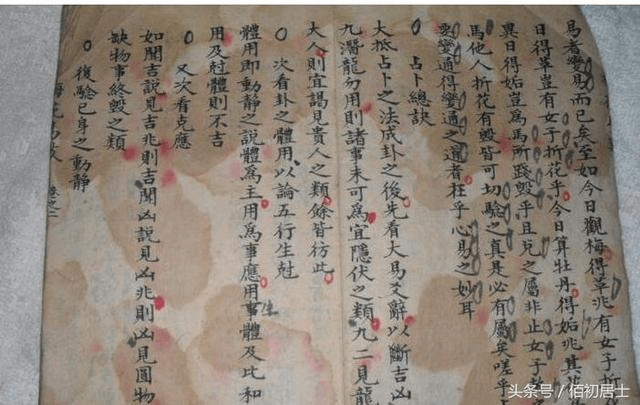 易者變易而已矣至如今日觀梅得革兆有女子折
日得革豈有女子折花乎今日算牡丹得姤兆其
異日得姤豈爲馬所踐毀乎且兌之屬非止女子
馬他人折花有毀皆可切驗之真是必有屬矣嗟乎
要變通得變通之道者在乎心易之妙耳
○占卜總訣
大抵占卜之法成卦之後先看大馬爻辭以斷吉凶
九潛龍勿用則諸事未可爲宜隱伏之類九二見龍
大人則宜謁見貴人之類餘皆彷此
○次看卦之體用以論五行生尅
體用即動靜之說體爲主用爲事應用事體及比和
生
用及尅體則不吉
○又次看克應
如聞吉說見吉兆則吉聞凶說見凶兆則凶見圓物
缺物事終毀之類
○復驗已身之動靜
頭条号／佰初居士